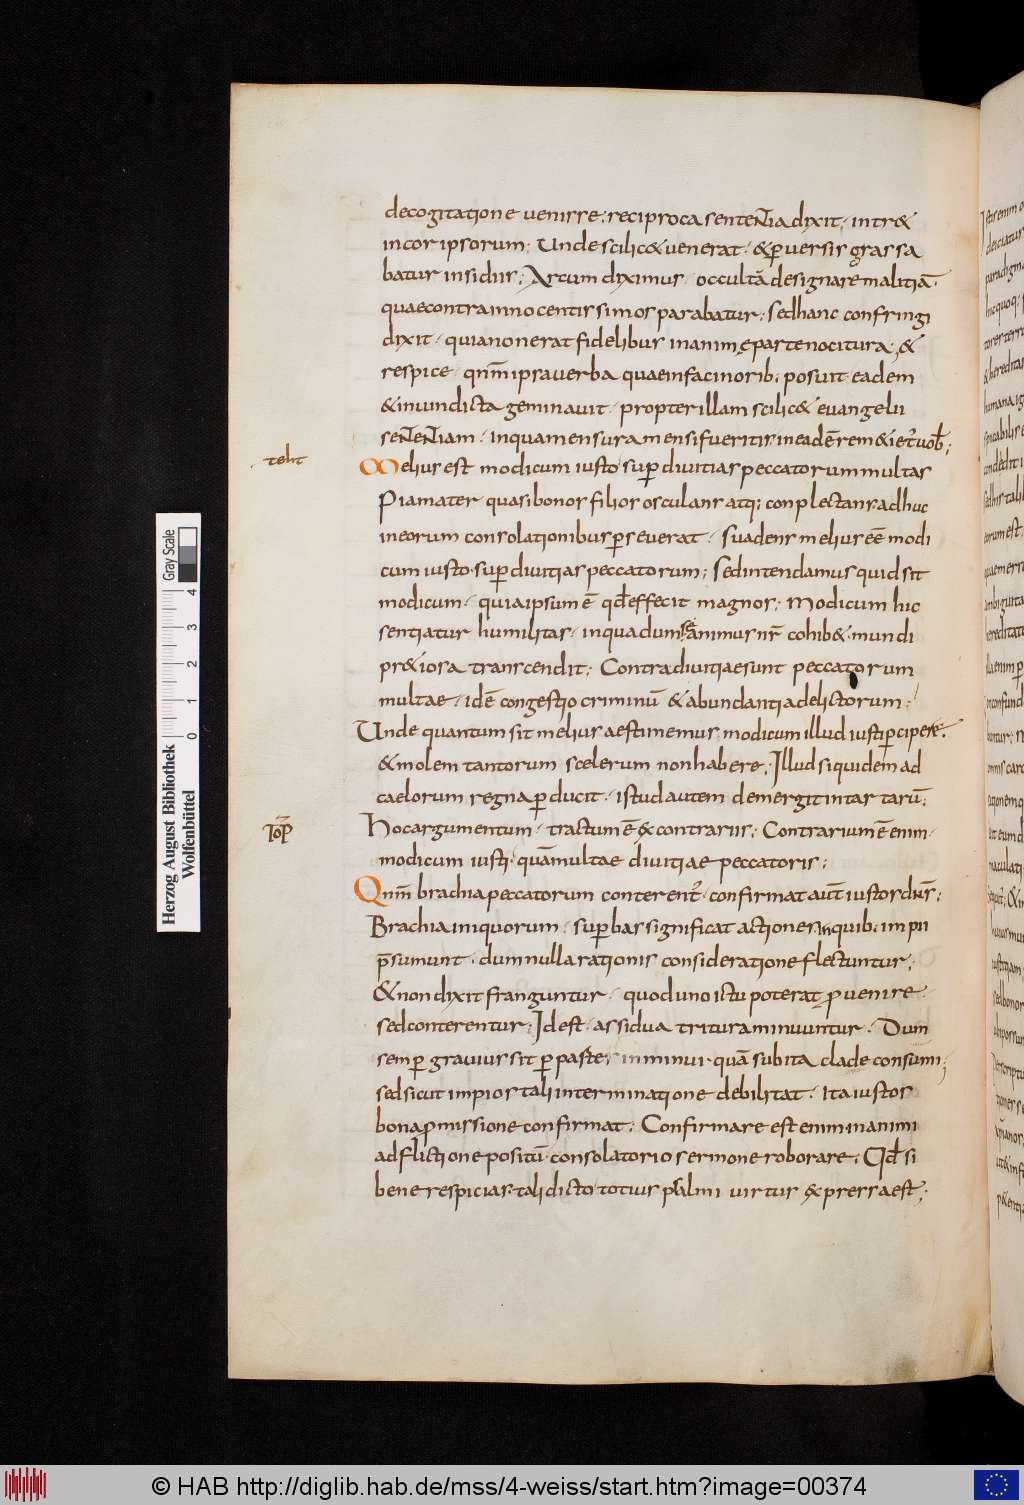 decogitatione uenisse; reciproca sententia dixit; intr&
incor ipsorum; Unde scilic& uenerat; & puersis grassa
batur insidiis; Arcum diximus; occultā designare malitiā;
quae contra innocentissimos parabatur; sed hanc confringi
dixit; quia non erat fidelibus in anime parte nocitura; &
respice; qnm̄ ipsa uerba quae in facinorib; posuit eadem
& in uindicta geminauit; propter illam scilic& euangelii
sententiam; in qua mensura mensi fueritis in eadē rem&i&̄ uob̄;
Melius est modicum iusto sup diuitias peccatorum multas
Pia mater quasi bonos filios osculans atq; conplectans adhuc
in eorum consolationibus pseuerat; suadens melius eē modi
cum iusto sup diuitias peccatorum; sed intendamus quid sit
modicum; quia ipsum ē qd̄ effecit magnos; Modicum hic
sentiatur humilitas; in qua dum se animus nr̄ cohib& mundi
pr&iosa transcendit; Contra diuitiae sunt peccatorum
multae; idē congestio criminū & abundantia delictorum;
Unde quantum sit melius aestimemus modicum illud iusti pcipere;
& molem tantorum scelerum non habere; Illud siquidem ad
caelorum regna pducit; istud autem demergit in tartarū;
Hoc argumentum tractum ē ex contrariis; Contrarium ē enim
modicum iusti quā multae diuitiae peccatoris;
Qnm̄ brachia peccatorum conterent̄ confirmat aut̄ iustos dn̄s;
Brachia iniquorum superbas significat actiones in quib; impii
p̄sumunt dum nulla rationis consideratione flectuntur;
& non dixit franguntur; quod uno ictu poterat puenire
sed conterentur; Idest assidua tritura minuuntur; Dum
semp grauius sit p partes inminui quā subita clade consumi;
sed sicut impios tali interminatione debilitat; Ita iustos
bona pmissione confirmat; Confirmare est enim in animi
adflictione positū consolatorio sermone roborare; Qd̄ si
bene respicias tali dicto totius psalmi uirtus expressa est;
Gray Scale
0 1 2 3 4
Herzog August Bibliothek
Wolfenbüttel
© HAB http://diglib.hab.de/mss/4-weiss/start.htm?image=00374